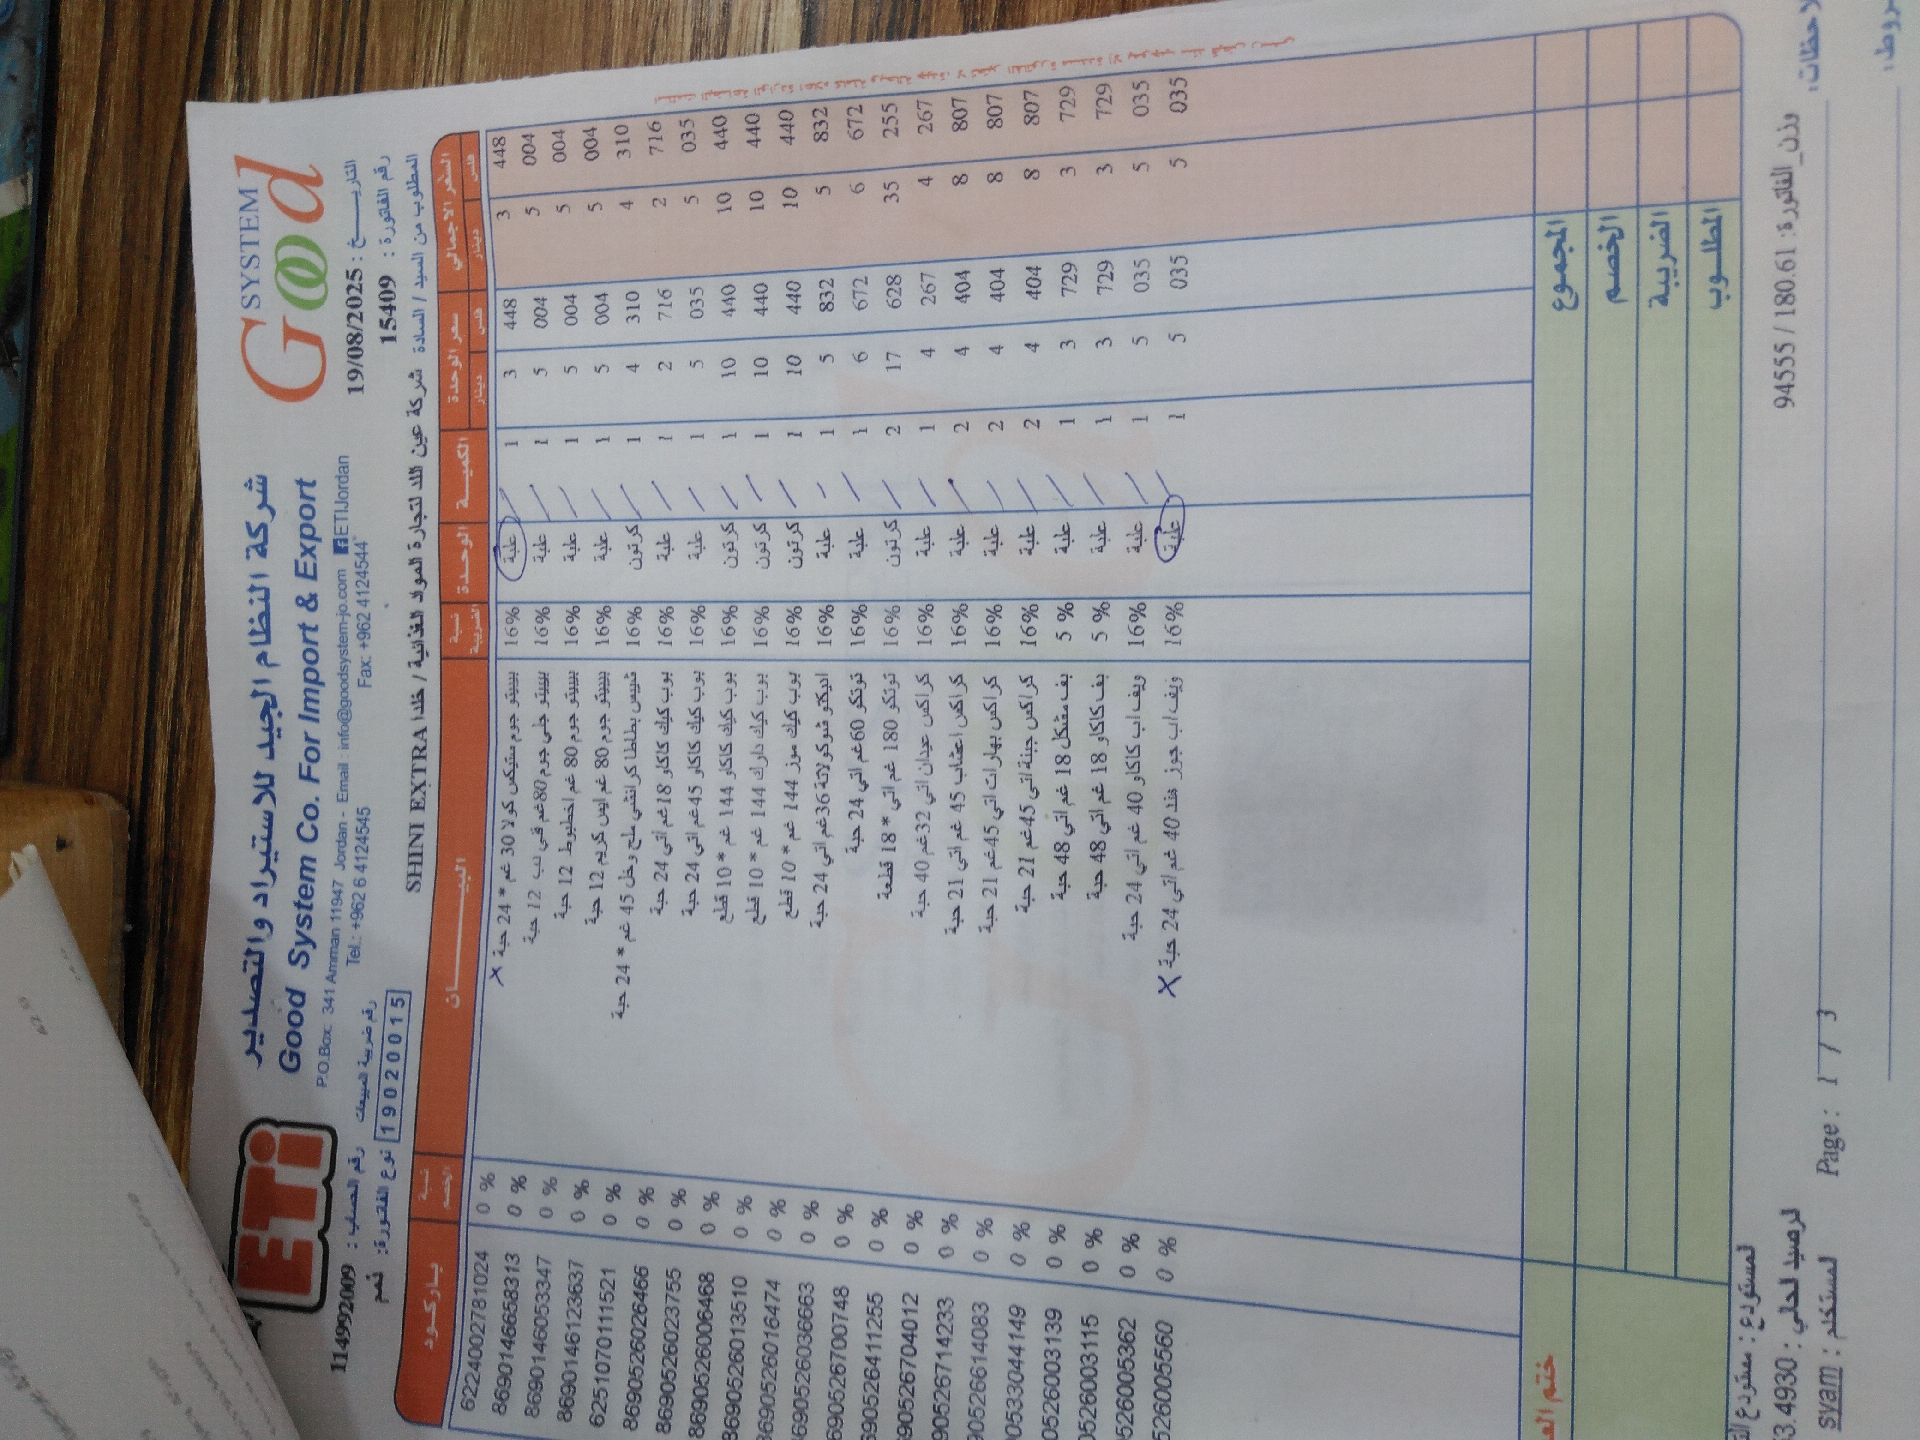 شركة النظام الجيد للاستيراد والتصدير
Good System Co. For Import & Export
P.O.Box: 341 Amman 11947 Jordan - Email : info@goodsystem-jo.com ETIJordan
Tel.: +962 6 4124545 Fax: +962 4124544
ETi
SYSTEM
Good
التاريـــــخ : 19/08/2025
رقم الفاتورة : 15409
رقم الحساب : 114992009
رقم ضريبة المبيعات
نوع الفاتورة: ذمم
19020015
المطلوب من السيد / السادة شركة عين اللد لتجارة المواد الغذائية / خلدا SHINI EXTRA
باركود نسبة الخصم البيـــــــان نسبة الضريبة الوحدة الكميـة سعر الوحدة السعر الاجمالي
دينار فلس دينار فلس
6224000278102​4 0 % بيبيتو جوم ستيكس كولا 30 غم * 24 حبة 16% علبة 1 3 448 3 448
8690146658313 0 % بيبيتو جلي جوم 80غم 12 حبة 16% علبة 1 5 004 5 004
8690146053347 0 % بيبيتو جوم 80 غم اخطبوط 12 حبة 16% علبة 1 5 004 5 004
8690146123637 0 % بيبيتو جوم 80 غم ايس كريم 12 حبة 16% علبة 1 5 004 5 004
6251070111521 0 % شيبس بطاطا كرانشي ملح وخل 45 غم * 24 حبة 16% كرتون 1 4 310 4 310
8690526026466 0 % بوب كيك كاكاو 18غم اتي 24 حبة 16% علبة 1 2 716 2 716
8690526023755 0 % بوب كيك كاكاو 45غم اتي 24 حبة 16% علبة 1 5 035 5 035
8690526006468 0 % بوب كيك كاكاو 144 غم * 10 قطع 16% كرتون 1 10 440 10 440
8690526013510 0 % بوب كيك دارك 144 غم * 10 قطع 16% كرتون 1 10 440 10 440
8690526016474 0 % بوب كيك موز 144 غم * 10 قطع 16% كرتون 1 10 440 10 440
690526036663 0 % شوكولاتة 36غم اتي 24 حبة 16% علبة 1 5 832 5 832
69052670074​8 0 % توتكو 60غم اتي 24 حبة 16% علبة 1 6 672 6 672
690526411255 0 % توتكو 180 غم اتي * 18 قطعة 16% كرتون 2 17 628 35 255
90526704012 0 % كراكس عيدان اتي 32غم 40 حبة 16% علبة 1 4 267 4 267
90526714233 0 % كراكس اعشاب 45 غم اتي 21 حبة 16% علبة 2 4 404 8 807
90526614083 0 % كراكس بهارات اتي 45غم 21 حبة 16% علبة 2 4 404 8 807
0533044149 0 % كراكس جبنة اتي 45غم 21 حبة 16% علبة 2 4 404 8 807
0526003139 0 % بف مشكل 18 غم اتي 48 حبة 5 % علبة 1 3 729 3 729
0526003115 0 % بف كاكاو 18 غم اتي 48 حبة 5 % علبة 1 3 729 3 729
526005362 0 % ويف اب كاكاو 40 غم اتي 24 حبة 16% علبة 1 5 035 5 035
526005560 0 % ويف اب جوز هند 40 غم اتي 24 حبة 16% علبة 1 5 035 5 035
المجموع
الخصم
الضريبة
المطلوب
ختم
وزن_الفاتورة: 180.61 / 94555
Page : 1 / 3